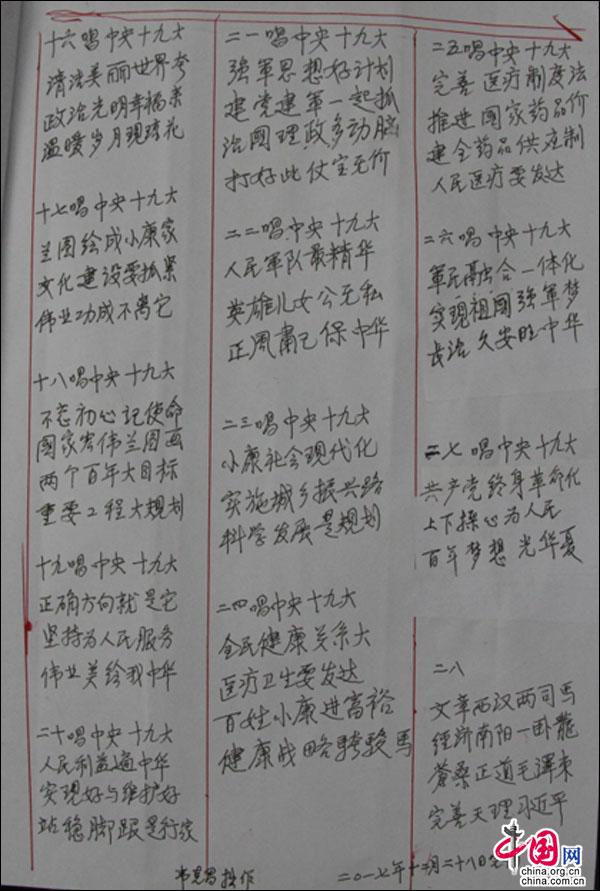 十六唱中央十九大
清洁美丽世界夸
政治光明幸福来
温暖岁月现琦花
十七唱中央十九大
兰图绘成小康家
文化建设要抓紧
伟业功成不离它
十八唱中央十九大
不忘初心記使命
國家宏伟兰图画
两个百年大目标
重要工程大规划
十九唱中央十九大
正确方向就是它
坚持为人民服务
伟业美绘我中华
二十唱中央十九大
人民利益遍中华
实现好与维护好
站稳脚跟是行家
二一唱中央十九大
强军思想好计划
建党建军一起抓
治國理政多动脑
打好此仗宝无价
二二唱中央十九大
人民军队最精华
英雄儿女公无私
正风肃己保中华
二三唱中央十九大
小康社会现代化
实施城乡振兴路
科学发展是规划
二四唱中央十九大
全民健康关系大
医疗卫生要发达
百姓小康进富裕
健康战略骋骏马
二五唱中央十九大
完善医疗制度法
推进國家药品价
建全药品供应制
人民医疗要发达
二六唱中央十九大
军民融合一体化
实现祖國强军梦
长治久安旺中华
二七唱中央十九大
共产党终身革命化
上下操心为人民
百年梦想光华夏
二八
文章西汉两司马
经济南阳一卧龍
苍桑正道毛泽東
完善天理习近平
二〇一七年十二月二十八日
中国网
china.org.cn
china.com.cn